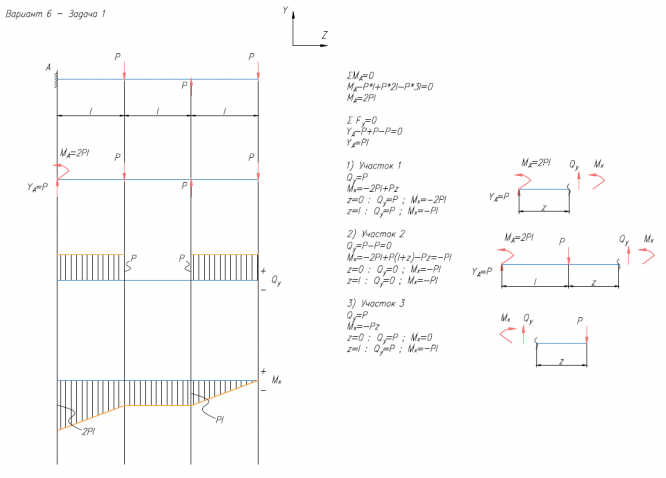 Вариант 6 – Задача 1
Y
Z
A
P
P
P
P
l
l
l
M_A=2Pl
Y_A=P
P
P
P
P
P
+
–
Q_y
+
–
M_x
2Pl
Pl
ΣM_A=0
M_A-P*l+P*2l-P*3l=0
M_A=2Pl
Σ F_y=0
Y_A-P+P-P=0
Y_A=Pl
1) Участок 1
Q_y=P
M_x=-2Pl+Pz
z=0 : Q_y=P ; M_x=-2Pl
z=l : Q_y=P ; M_x=-Pl
2) Участок 2
Q_y=P-P=0
M_x=-2Pl+P(l+z)-Pz=-Pl
z=0 : Q_y=0 ; M_x=-Pl
z=l : Q_y=0 ; M_x=-Pl
3) Участок 3
Q_y=P
M_x=-Pz
z=0 : Q_y=P ; M_x=0
z=l : Q_y=P ; M_x=-Pl
M_A=2Pl
Q_y
M_x
Y_A=P
z
M_A=2Pl
P
Q_y
M_x
Y_A=P
l
z
M_x
Q_y
P
z